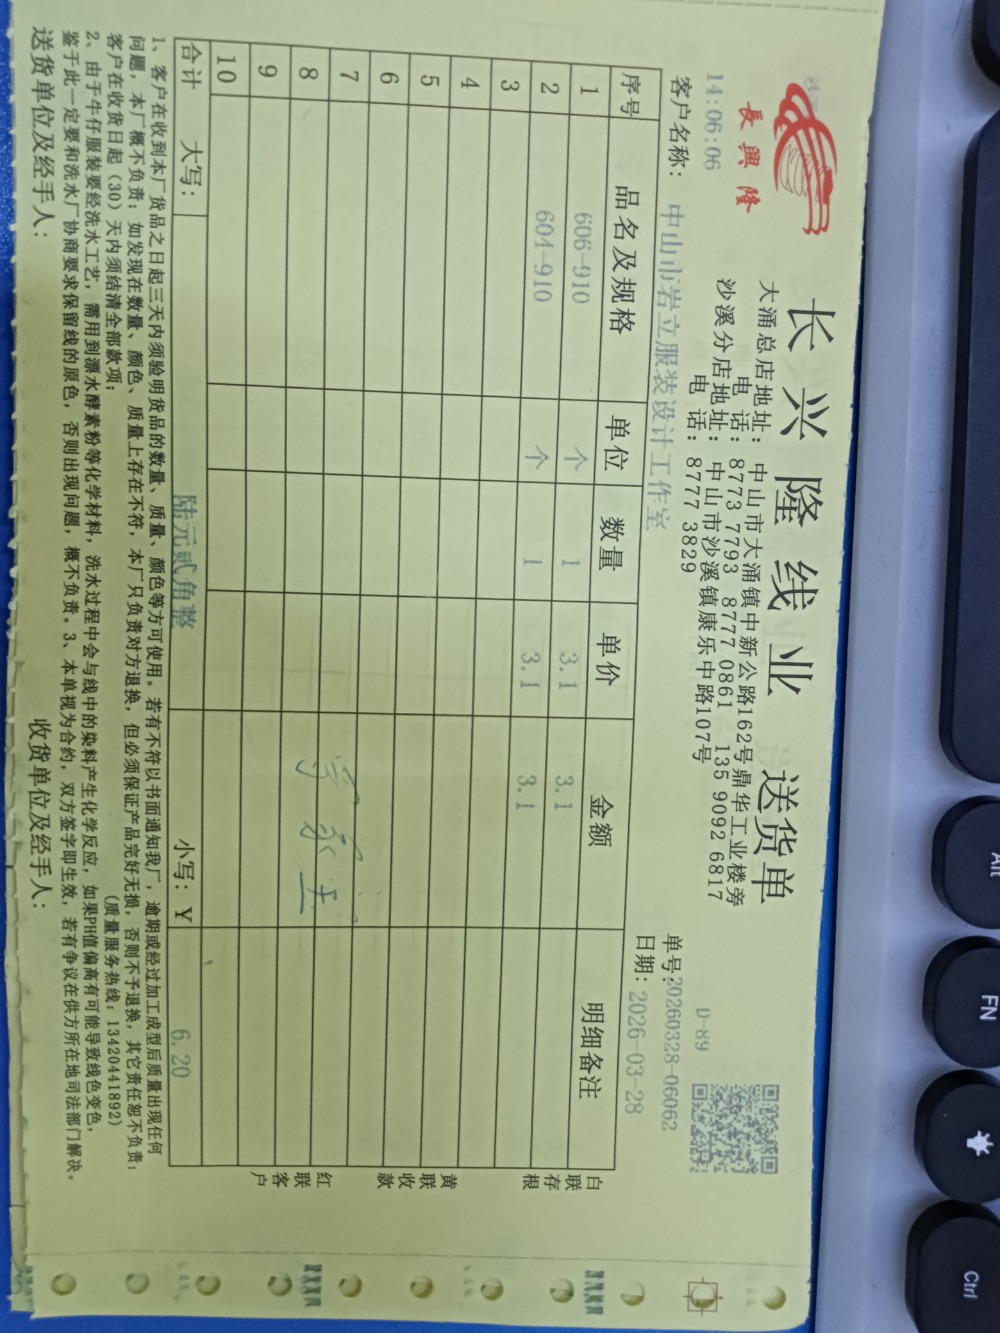 長興隆
长兴隆线业 送货单
大涌总店地址: 中山市大涌镇中新公路162号鼎华工业楼旁
电 话: 8773 7793 8777 0861 135 9092 6817
沙溪分店地址: 中山市沙溪镇康乐中路107号
电 话: 8777 3829
D-89
14:06:06
单号:20260328-06062
客户名称: 中山市岩立服装设计工作室
日期: 2026-03-28
序号 品名及规格 单位 数量 单价 金额 明细备注
1 606-910 个 1 3.1 3.1
2 604-910 个 1 3.1 3.1
3
4
5
6
7
8
9
10
合计 大写: 陆元贰角整 小写: ¥ 6.20
白联存根
黄联收款
红联客户
1、客户在收到本厂货品之日起三天内须验明货品的数量、质量、颜色等方可使用。若有不符以书面通知我厂，逾期或经过加工成型后质量出现任何
问题，本厂概不负责；如发现在数量、颜色、质量上存在不符，本厂只负责对方退换，但必须保证产品完好无损，否则不予退换，其它责任恕不负责；
客户在收货日起（30）天内须结清全部款项； (质量服务热线: 13420441892)
2、由于牛仔服装要经洗水工艺，需用到漂水酵素粉等化学材料，洗水过程中会与线中的染料产生化学反应，如果PH值偏高有可能导致线色变色，
鉴于此一定要和洗水厂协商要求保留线的原色，否则出现问题，概不负责。3、本单视为合约，双方签字即生效，若有争议在供方所在地司法部门解决。
送货单位及经手人: 收货单位及经手人:
Alt
FN
Ctrl